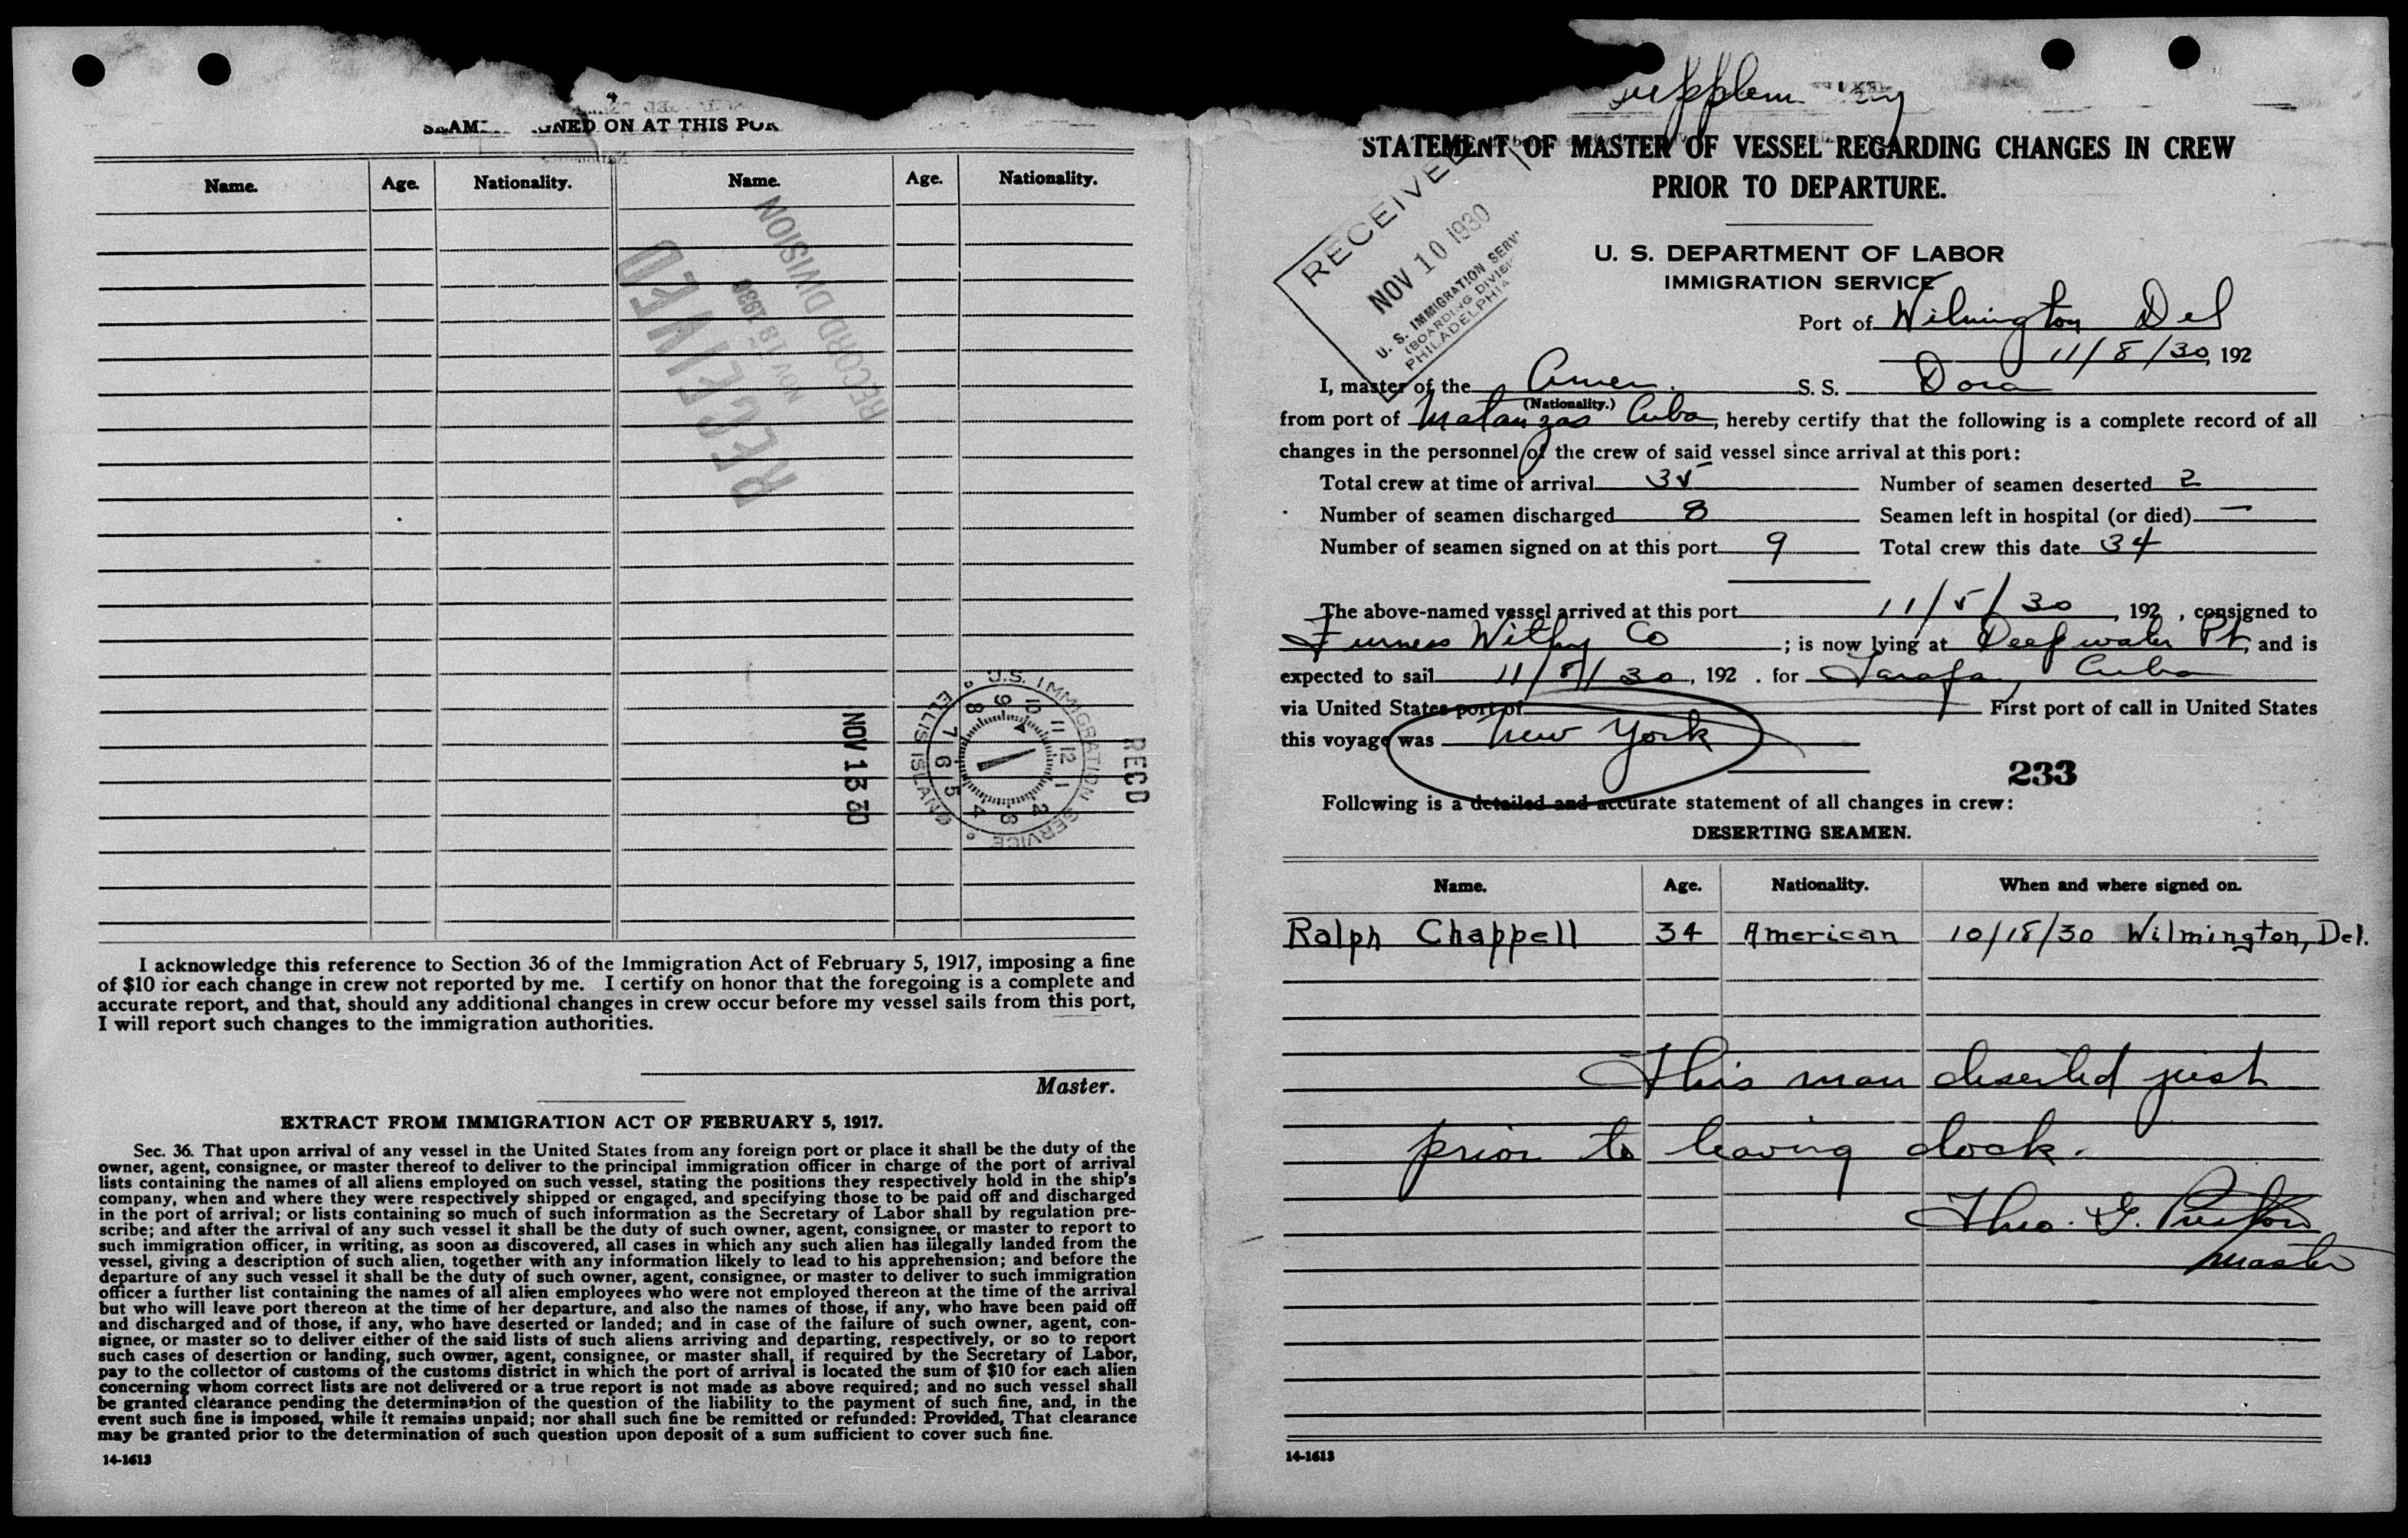 ON AT THIS
Name. Age. Nationality. Name. Age. Nationality.
RECEIVED
NOV 13 1930
RECORD DIVISION
NOV 13 30
U.S. IMMIGRATION SERVICE
ELLIS ISLAND
7 8 9 10 11 12 1 2 3 4 5 6
RECD
I acknowledge this reference to Section 36 of the Immigration Act of February 5, 1917, imposing a fine
of $10 for each change in crew not reported by me. I certify on honor that the foregoing is a complete and
accurate report, and that, should any additional changes in crew occur before my vessel sails from this port,
I will report such changes to the immigration authorities.
Master.
EXTRACT FROM IMMIGRATION ACT OF FEBRUARY 5, 1917.
Sec. 36. That upon arrival of any vessel in the United States from any foreign port or place it shall be the duty of the
owner, agent, consignee, or master thereof to deliver to the principal immigration officer in charge of the port of arrival
lists containing the names of all aliens employed on such vessel, stating the positions they respectively hold in the ship's
company, when and where they were respectively shipped or engaged, and specifying those to be paid off and discharged
in the port of arrival; or lists containing so much of such information as the Secretary of Labor shall by regulation pre-
scribe; and after the arrival of any such vessel it shall be the duty of such owner, agent, consignee, or master to report to
such immigration officer, in writing, as soon as discovered, all cases in which any such alien has illegally landed from the
vessel, giving a description of such alien, together with any information likely to lead to his apprehension; and before the
departure of any such vessel it shall be the duty of such owner, agent, consignee, or master to deliver to such immigration
officer a further list containing the names of all alien employees who were not employed thereon at the time of the arrival
but who will leave port thereon at the time of her departure, and also the names of those, if any, who have been paid off
and discharged and of those, if any, who have deserted or landed; and in case of the failure of such owner, agent, con-
signee, or master so to deliver either of the said lists of such aliens arriving and departing, respectively, or so to report
such cases of desertion or landing, such owner, agent, consignee, or master shall, if required by the Secretary of Labor,
pay to the collector of customs of the customs district in which the port of arrival is located the sum of $10 for each alien
concerning whom correct lists are not delivered or a true report is not made as above required; and no such vessel shall
be granted clearance pending the determination of the question of the liability to the payment of such fine, and, in the
event such fine is imposed, while it remains unpaid; nor shall such fine be remitted or refunded: Provided, That clearance
may be granted prior to the determination of such question upon deposit of a sum sufficient to cover such fine.
14-1613
STATEMENT OF MASTER OF VESSEL REGARDING CHANGES IN CREW
PRIOR TO DEPARTURE.
RECEIVED
NOV 10 1930
U. S. IMMIGRATION SERV
(BOARDING DIVISI
PHILADELPHIA
U. S. DEPARTMENT OF LABOR
IMMIGRATION SERVICE
Port of Wilmington Del
11/8/30, 192
I, master of the Amer. S. S. Dora
(Nationality.)
from port of Matanzas Cuba, hereby certify that the following is a complete record of all
changes in the personnel of the crew of said vessel since arrival at this port:
Total crew at time of arrival 35 Number of seamen deserted 2
Number of seamen discharged 8 Seamen left in hospital (or died) —
Number of seamen signed on at this port 9 Total crew this date 34
The above-named vessel arrived at this port 11/5/30, 192 , consigned to
Furness Withy Co ; is now lying at Deepwater Pt, and is
expected to sail 11/8/30, 192 . for Tarafa, Cuba
via United States port of First port of call in United States
this voyage was New York
233
Following is a detailed and accurate statement of all changes in crew:
DESERTING SEAMEN.
Name. Age. Nationality. When and where signed on.
Ralph Chappell 34 American 10/18/30 Wilmington, Del.
This man deserted just
prior to leaving dock.
Theo. G.
Master
14-1613